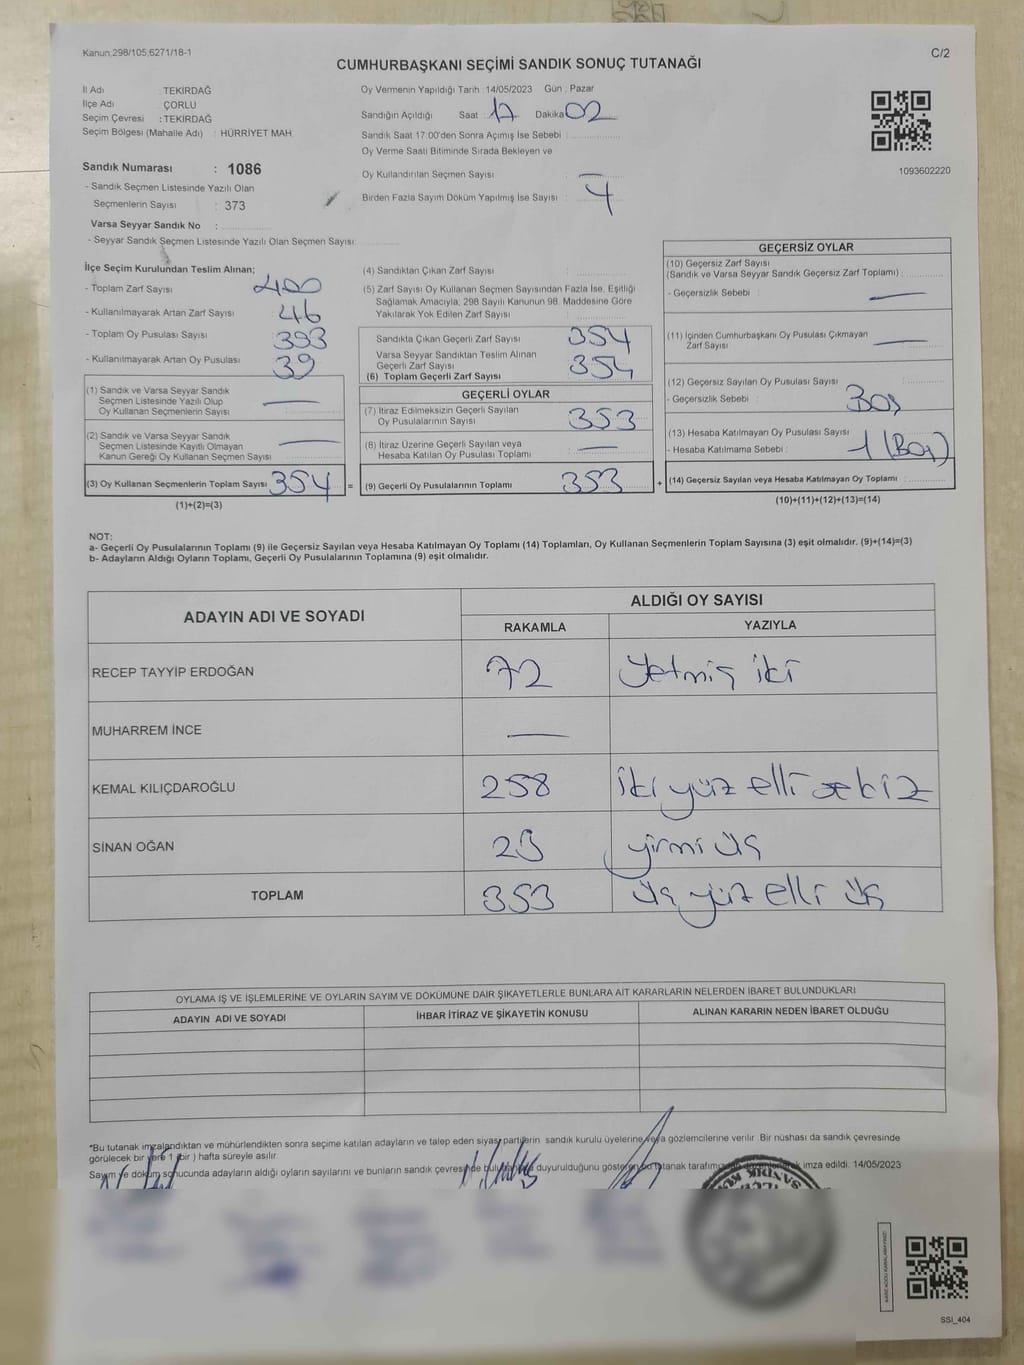 Kanun,298/105,6271/18-1
C/2
CUMHURBAŞKANI SEÇİMİ SANDIK SONUÇ TUTANAĞI
İl Adı : TEKİRDAĞ
İlçe Adı : ÇORLU
Seçim Çevresi : TEKİRDAĞ
Seçim Bölgesi (Mahalle Adı) : HÜRRİYET MAH.
Sandık Numarası : 1086
- Sandık Seçmen Listesinde Yazılı Olan
Seçmenlerin Sayısı : 373
Varsa Seyyar Sandık No :
- Seyyar Sandık Seçmen Listesinde Yazılı Olan Seçmen Sayısı:
Oy Vermenin Yapıldığı Tarih :14/05/2023 Gün : Pazar
Sandığın Açıldığı Saat 17 Dakika 02
Sandık Saat 17:00'den Sonra Açımış İse Sebebi :
Oy Verme Saati Bitiminde Sırada Bekleyen ve
Oy Kullandırılan Seçmen Sayısı : —
Birden Fazla Sayım Döküm Yapılmış İse Sayısı : 4
1093602220
İlçe Seçim Kurulundan Teslim Alınan;
- Toplam Zarf Sayısı : 400
- Kullanılmayarak Artan Zarf Sayısı : 46
- Toplam Oy Pusulası Sayısı : 393
- Kullanılmayarak Artan Oy Pusulası : 39
(1) Sandık ve Varsa Seyyar Sandık
Seçmen Listesinde Yazılı Olup
Oy Kullanan Seçmenlerin Sayısı : —
(2) Sandık ve Varsa Seyyar Sandık
Seçmen Listesinde Kayıtlı Olmayan
Kanun Gereği Oy Kullanan Seçmen Sayısı : —
(3) Oy Kullanan Seçmenlerin Toplam Sayısı 354 =
(1)+(2)=(3)
(4) Sandıktan Çıkan Zarf Sayısı :
(5) Zarf Sayısı Oy Kullanan Seçmen Sayısından Fazla İse, Eşitliği
Sağlamak Amacıyla, 298 Sayılı Kanunun 98. Maddesine Göre
Yakılarak Yok Edilen Zarf Sayısı :
Sandıkta Çıkan Geçerli Zarf Sayısı 354
Varsa Seyyar Sandıktan Teslim Alınan
Geçerli Zarf Sayısı
(6) Toplam Geçerli Zarf Sayısı 354
GEÇERLİ OYLAR
(7) İtiraz Edilmeksizin Geçerli Sayılan
Oy Pusulalarının Sayısı : 353
(8) İtiraz Üzerine Geçerli Sayılan veya
Hesaba Katılan Oy Pusulası Toplamı : —
(9) Geçerli Oy Pusulalarının Toplamı 353 +
GEÇERSİZ OYLAR
(10) Geçersiz Zarf Sayısı
(Sandık ve Varsa Seyyar Sandık Geçersiz Zarf Toplamı) :
- Geçersizlik Sebebi : —
(11) İçinden Cumhurbaşkanı Oy Pusulası Çıkmayan
Zarf Sayısı —
(12) Geçersiz Sayılan Oy Pusulası Sayısı :
- Geçersizlik Sebebi : Boş
(13) Hesaba Katılmayan Oy Pusulası Sayısı :
- Hesaba Katılmama Sebebi : 1 (Boş)
(14) Geçersiz Sayılan veya Hesaba Katılmayan Oy Toplamı :
(10)+(11)+(12)+(13)=(14)
NOT:
a- Geçerli Oy Pusulalarının Toplamı (9) ile Geçersiz Sayılan veya Hesaba Katılmayan Oy Toplamı (14) Toplamları, Oy Kullanan Seçmenlerin Toplam Sayısına (3) eşit olmalıdır. (9)+(14)=(3)
b- Adayların Aldığı Oyların Toplamı, Geçerli Oy Pusulalarının Toplamına (9) eşit olmalıdır.
ADAYIN ADI VE SOYADI ALDIĞI OY SAYISI
RAKAMLA YAZIYLA
RECEP TAYYİP ERDOĞAN 72 Yetmiş iki
MUHARREM İNCE —
KEMAL KILIÇDAROĞLU 258 iki yüz elli sekiz
SİNAN OĞAN 23 yirmi üç
TOPLAM 353 üç yüz elli üç
OYLAMA İŞ VE İŞLEMLERİNE VE OYLARIN SAYIM VE DÖKÜMÜNE DAİR ŞİKAYETLERLE BUNLARA AİT KARARLARIN NELERDEN İBARET BULUNDUKLARI
ADAYIN ADI VE SOYADI İHBAR İTİRAZ VE ŞİKAYETİN KONUSU ALINAN KARARIN NEDEN İBARET OLDUĞU
*Bu tutanak imzalandıktan ve mühürlendikten sonra seçime katılan adayların ve talep eden siyasi partilerin sandık kurulu üyelerine veya gözlemcilerine verilir. Bir nüshası da sandık çevresinde
görülecek bir yere 1 (bir) hafta süreyle asılır.
Sayım ve döküm sonucunda adayların aldığı oyların sayılarını ve bunların sandık çevresinde duyurulduğunu gösteren bu tutanak imza edildi. 14/05/2023
SSİ_404